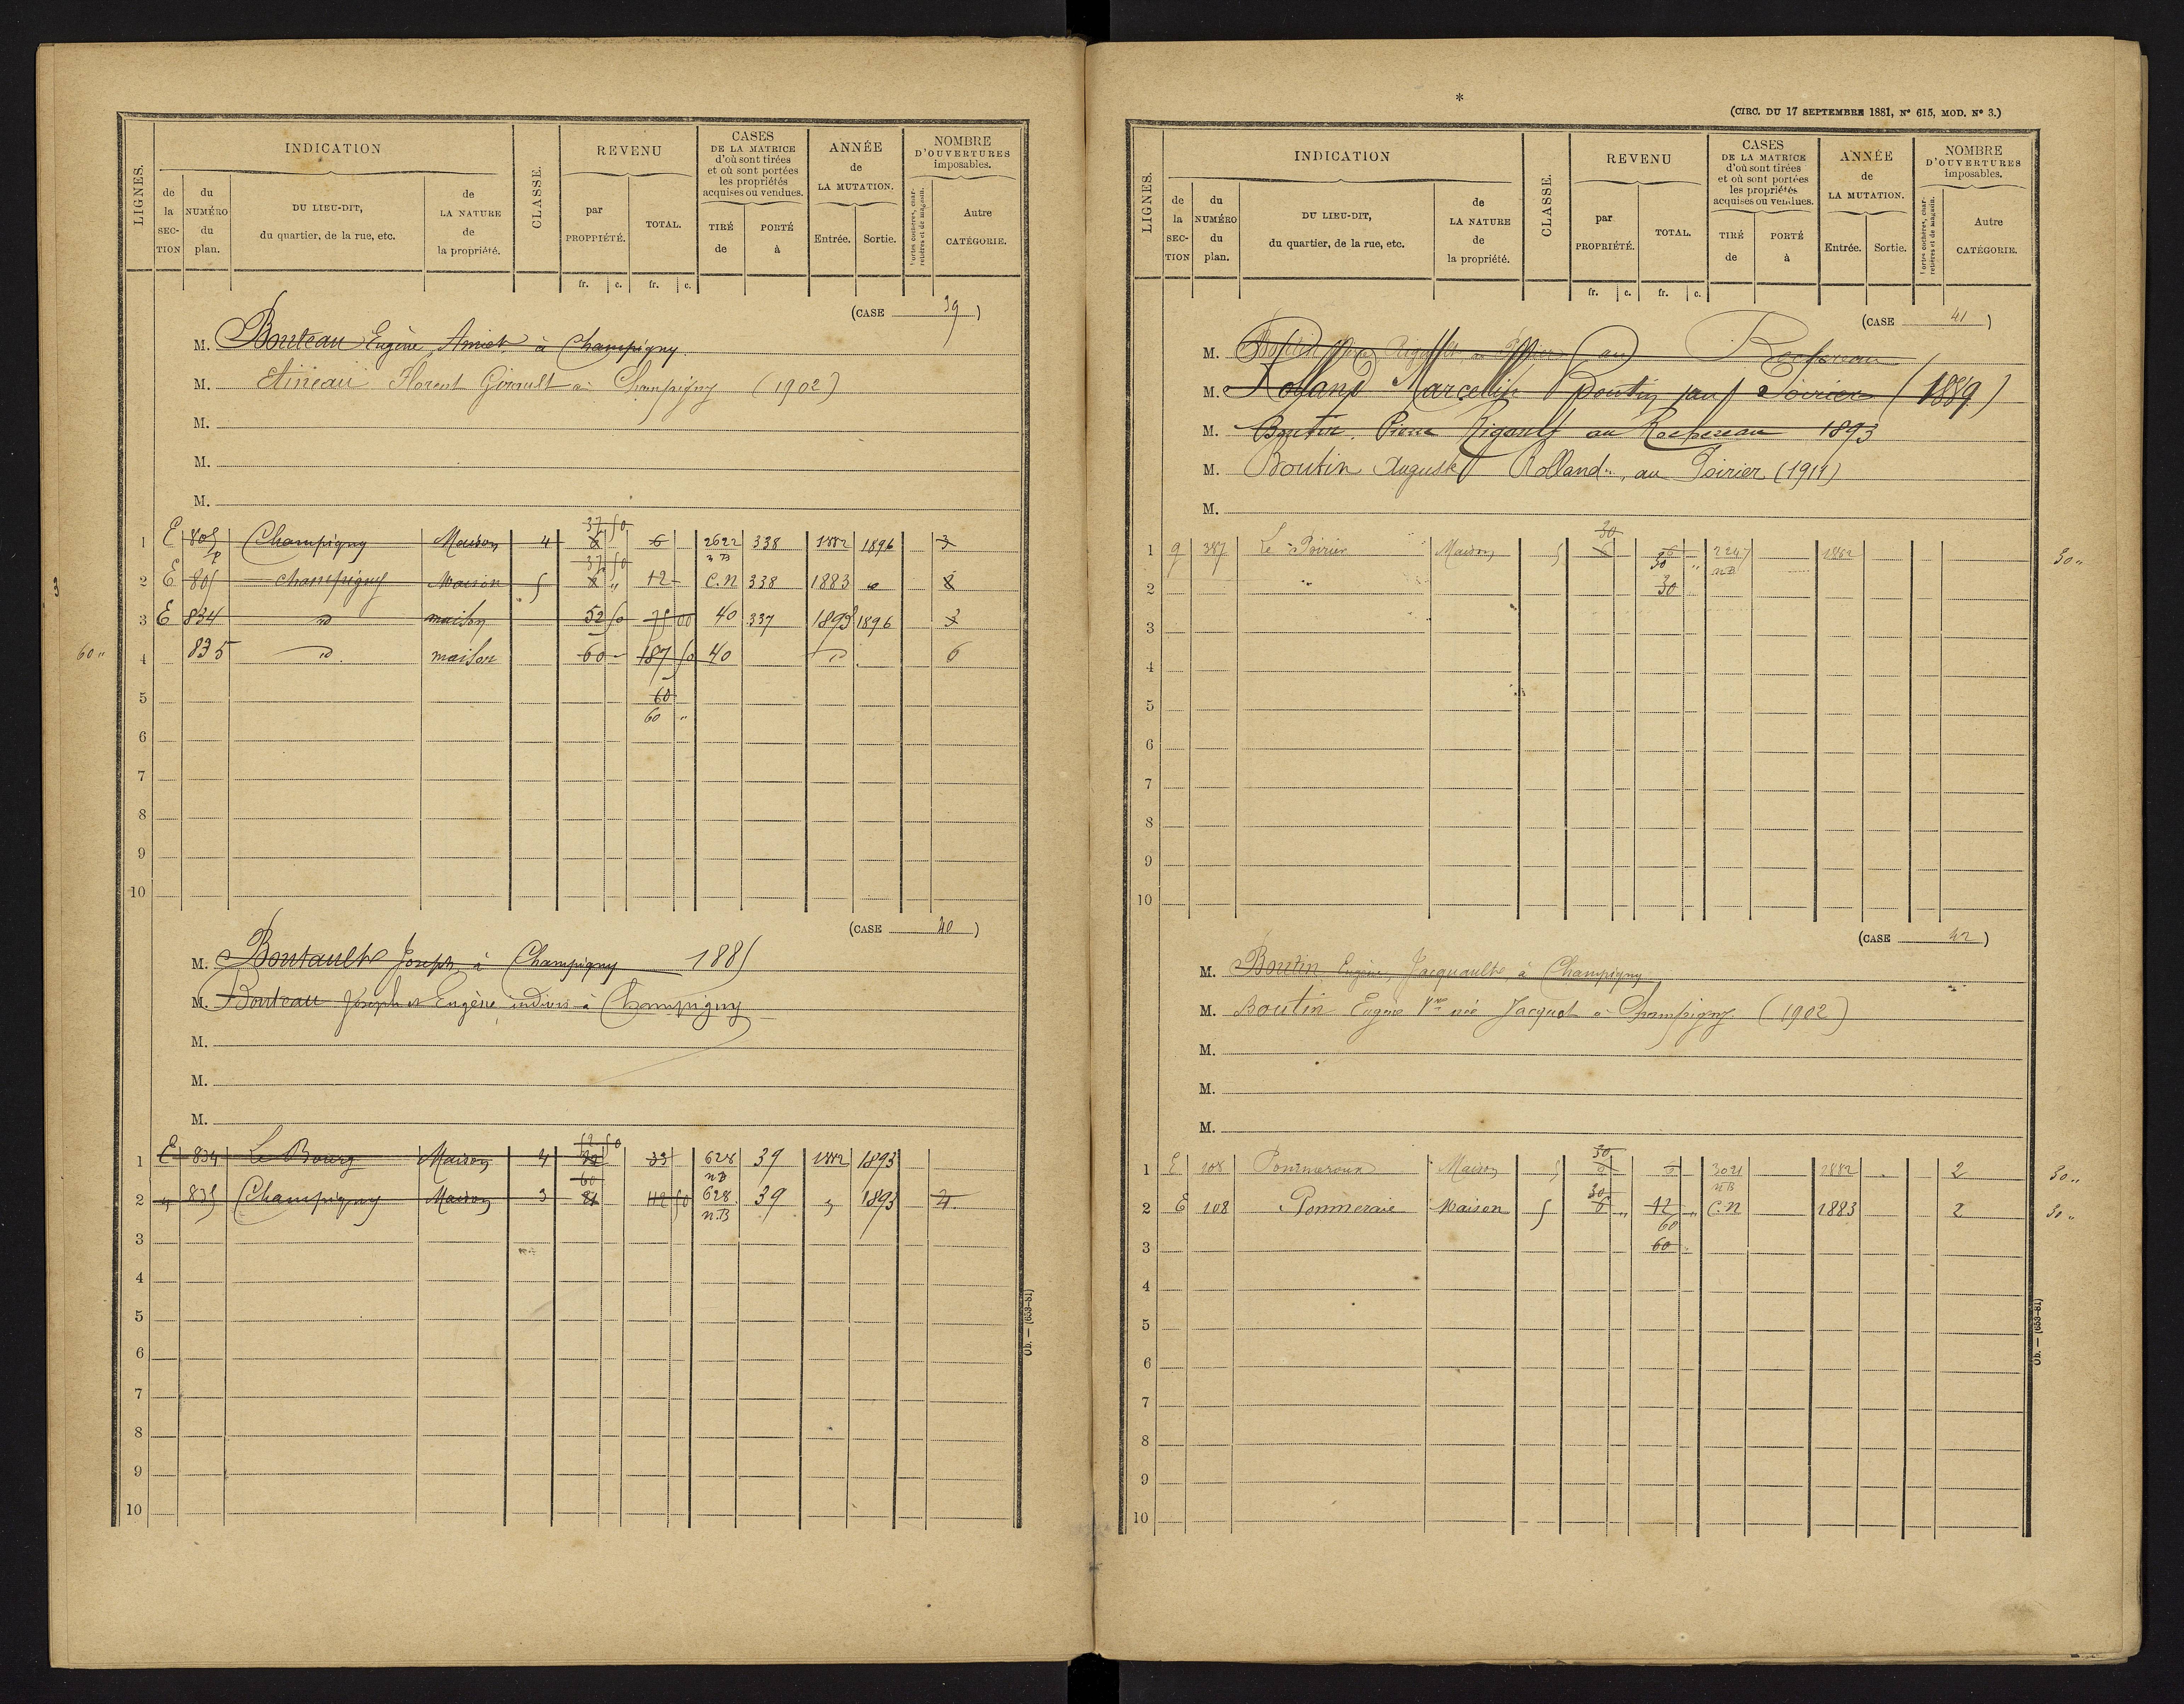 LIGNES.
INDICATION
de la SECTION
du NUMÉRO du plan.
DU LIEU-DIT, du quartier, de la rue, etc.
de LA NATURE de la propriété.
CLASSE.
REVENU
par PROPRIÉTÉ.
TOTAL.
fr. c. fr. c.
CASES DE LA MATRICE d'où sont tirées et où sont portées les propriétés acquises ou vendues.
TIRÉ de
PORTÉ à
ANNÉE de LA MUTATION.
Entrée. Sortie.
NOMBRE D'OUVERTURES imposables.
Portes cochères, charretières et de magasin.
Autre CATÉGORIE.
(CASE 39)
M. Bouteau Eugène Amiet à Champigny
M. Florent Girault à Champigny (1902)
M.
M.
M.
37 50
1 E 805 p Champigny Maison 4 6 2622 n B 338 1882 1896 3
37 50
2 E 805 Champigny Maison 5 12 C.N 338 1883 8
3 E 834 d maison 52 50 75 00 40 337 1893 1896 3
60 " 4 835 d maison 60 187 50 40 d 6
5 60
60 "
6
7
8
9
10
(CASE 40)
M. Boutault Joseph à Champigny 1885
M. Bouteau Joseph et Eugène indivis à Champigny
M.
M.
M.
52 50
1 E 834 Le Bourg Maison 4 33 628 n B 39 1882 1893
60
2 835 Champigny Maison 3 81 112 50 628 n.B 39 1893 4
3
4
5
6
7
8
9
10
Ob. — (653-81)
*
(CIRC. DU 17 SEPTEMBRE 1881, N° 615, MOD. N° 3.)
LIGNES.
INDICATION
de la SECTION
du NUMÉRO du plan.
DU LIEU-DIT, du quartier, de la rue, etc.
de LA NATURE de la propriété.
CLASSE.
REVENU
par PROPRIÉTÉ.
TOTAL.
fr. c. fr. c.
CASES DE LA MATRICE d'où sont tirées et où sont portées les propriétés acquises ou vendues.
TIRÉ de
PORTÉ à
ANNÉE de LA MUTATION.
Entrée. Sortie.
NOMBRE D'OUVERTURES imposables.
Portes cochères, charretières et de magasin.
Autre CATÉGORIE.
(CASE 41)
M. Boutin Rigault au Rochereau
M. Rolland Marcellin Boutin au Poirier (1889)
M. Boutin Pierre Rigault au Rochereau 1893
M. Boutin Auguste Rolland, au Poirier (1911)
M.
30
1 g 387 Le Poirier Maison 5 6 2247 n B 1882 30 "
30 "
2 " 30
3
4
5
6
7
8
9
10
(CASE 42)
M. Boutin Eugène, Jacquault à Champigny
M. Boutin Eugène Vve née Jacquot à Champigny (1902)
M.
M.
M.
30
1 E 108 Pommeroux Maison 5 3021 n B 1882 2 30 "
30
2 E 108 Pommeraie Maison 5 6 " 12 " C.N 1883 2 30 "
60
3 60
4
5
6
7
8
9
10
Ob. — (653-81)